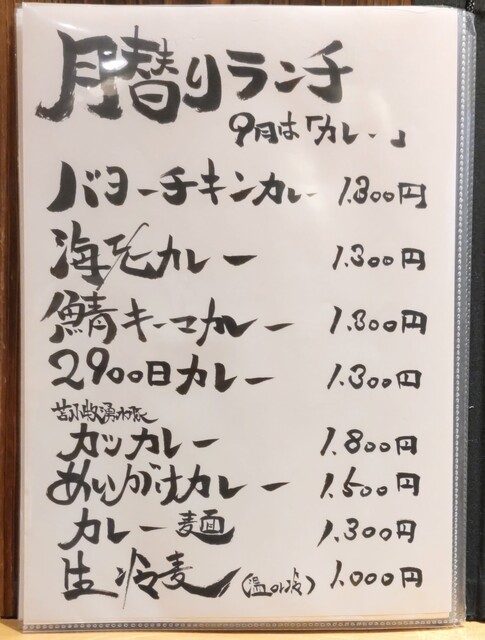 月替りランチ
9月は「カレー」
バターチキンカレー 1.300円
海老カレー 1.300円
鯖キーマカレー 1.300円
2900日カレー 1.300円
カツカレー 1.800円
あいがけカレー 1.500円
カレー麺 1.300円
生冷麦 (温or冷) 1.000円